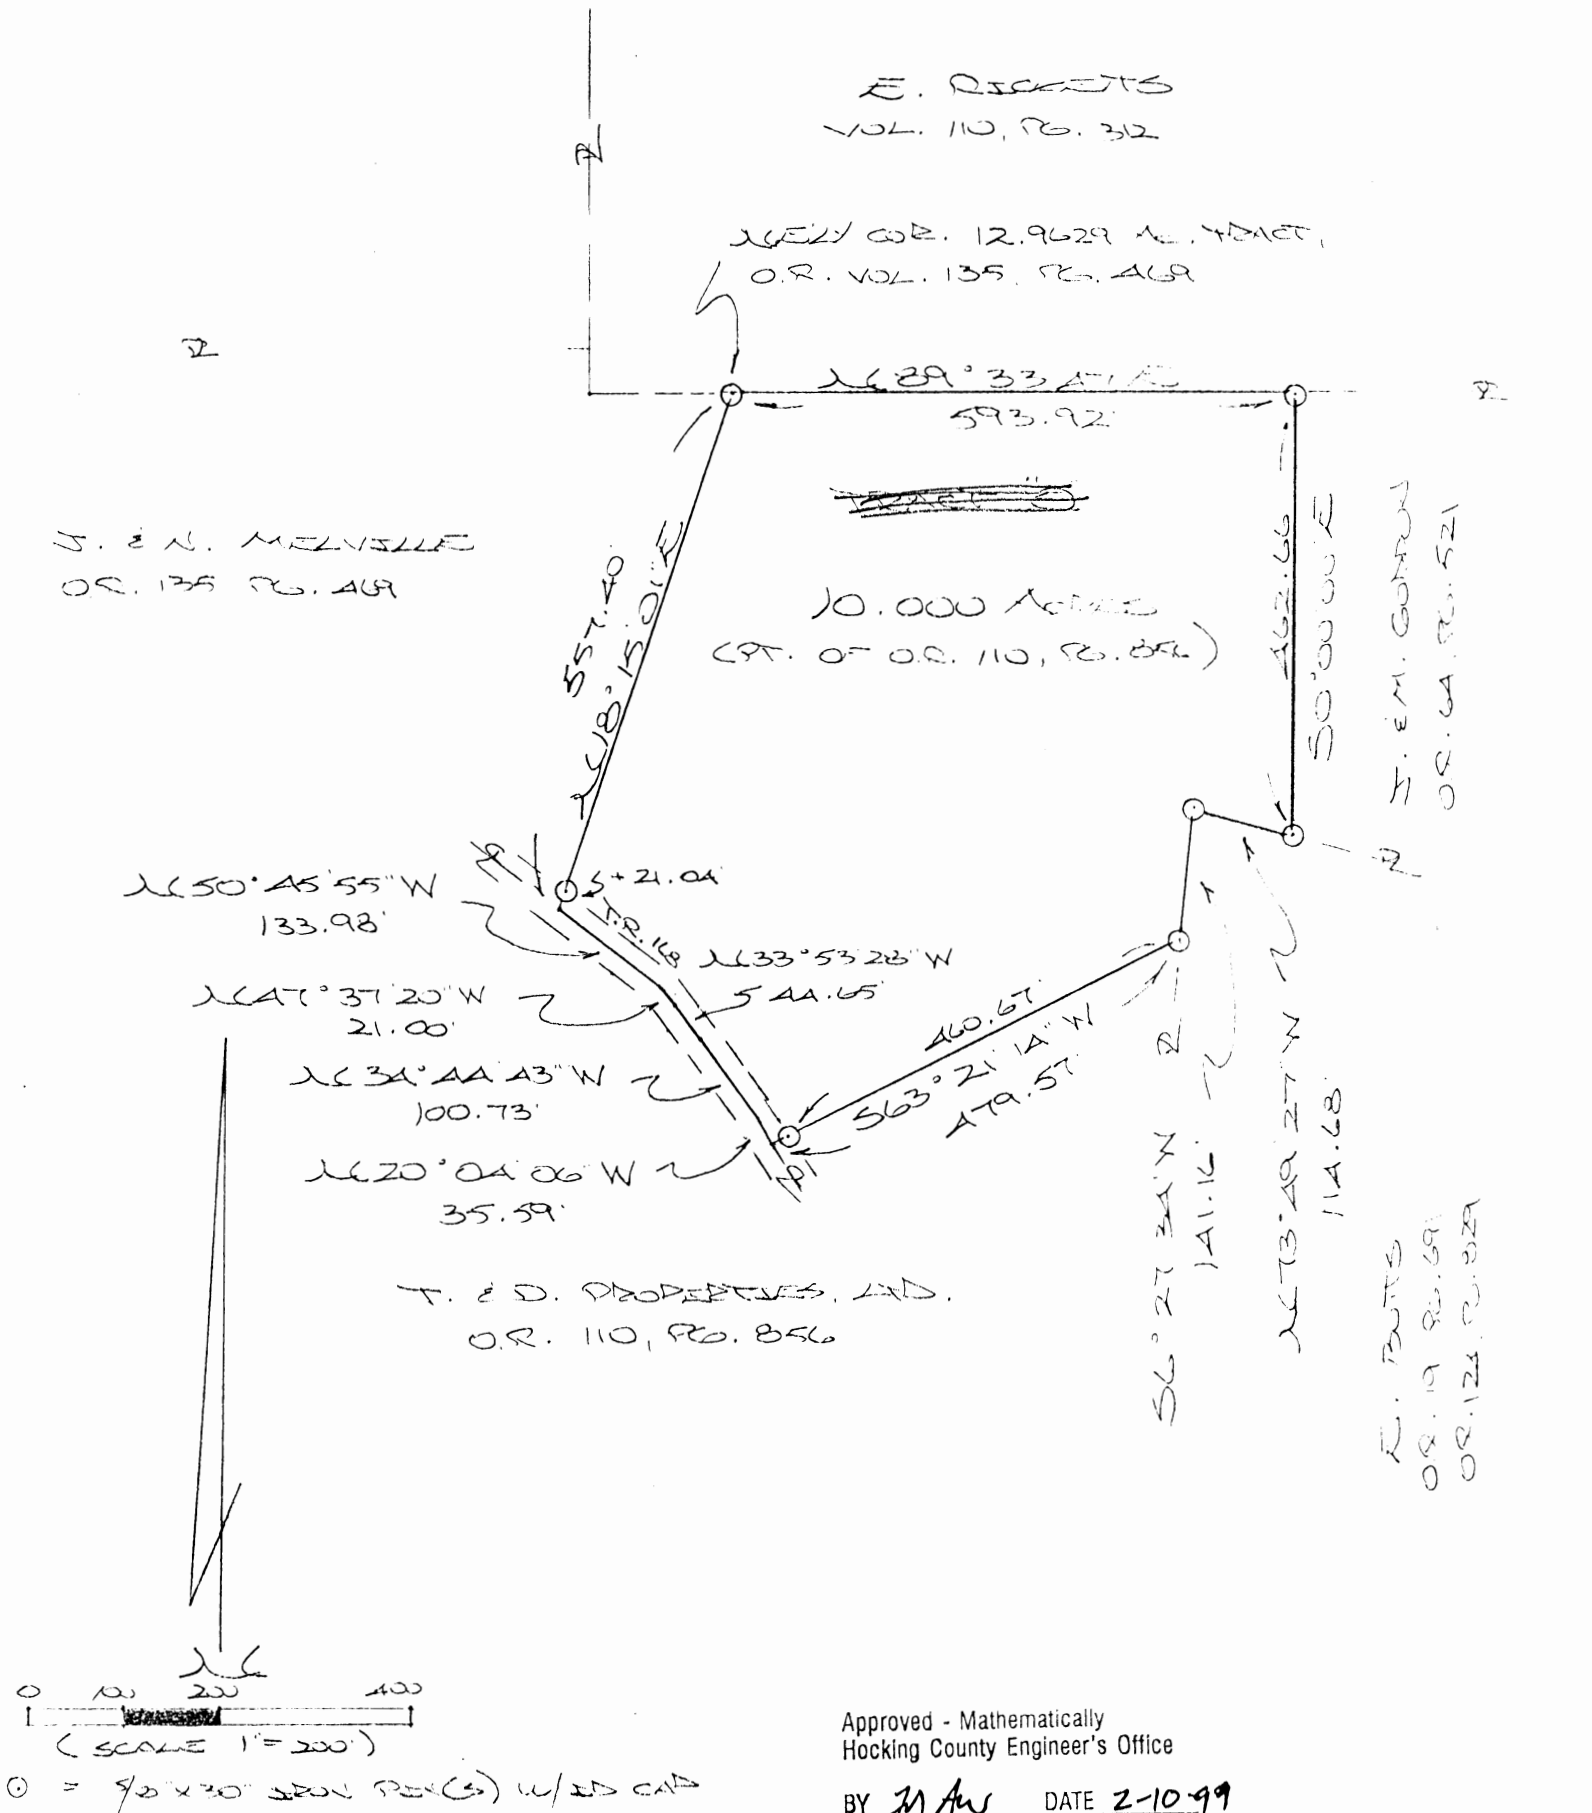 E. RICKETTS
VOL. 110, PG. 312
N'ELY COR. 12.9629 AC. TRACT,
O.R. VOL. 135, PG. 469
N 89° 33' 47" E
593.92'
J. & N. MELVILLE
O.R. 135 PG. 469
557.40'
N 18° 15' 01" E
10.000 ACRES
(PT. OF O.R. 110, PG. 856)
462.66'
S 0° 00' 00" E
J. & M.
O.R. 64, PG. 521
N 50° 45' 55" W
133.98'
5+21.04
T.R. 168
N 33° 53' 28" W
544.65'
N 47° 37' 20" W
21.00'
N 34° 44' 43" W
100.73'
N 20° 04' 06" W
35.59'
460.67'
S 63° 21' 14" W
479.57'
S 6° 27' 34" W
141.16'
N 73° 49' 27" W
114.68'
T. & D. PROPERTIES, LTD.
O.R. 110, PG. 856
R. BUTTS
O.R. 19 PG. 69
O.R. 124, PG. 829
N
0 100 200 400
(SCALE 1" = 200')
= 5/8" x 30" IRON PIN(S) W/ID CAP
Approved - Mathematically
Hocking County Engineer's Office
BY DATE 2-10-99